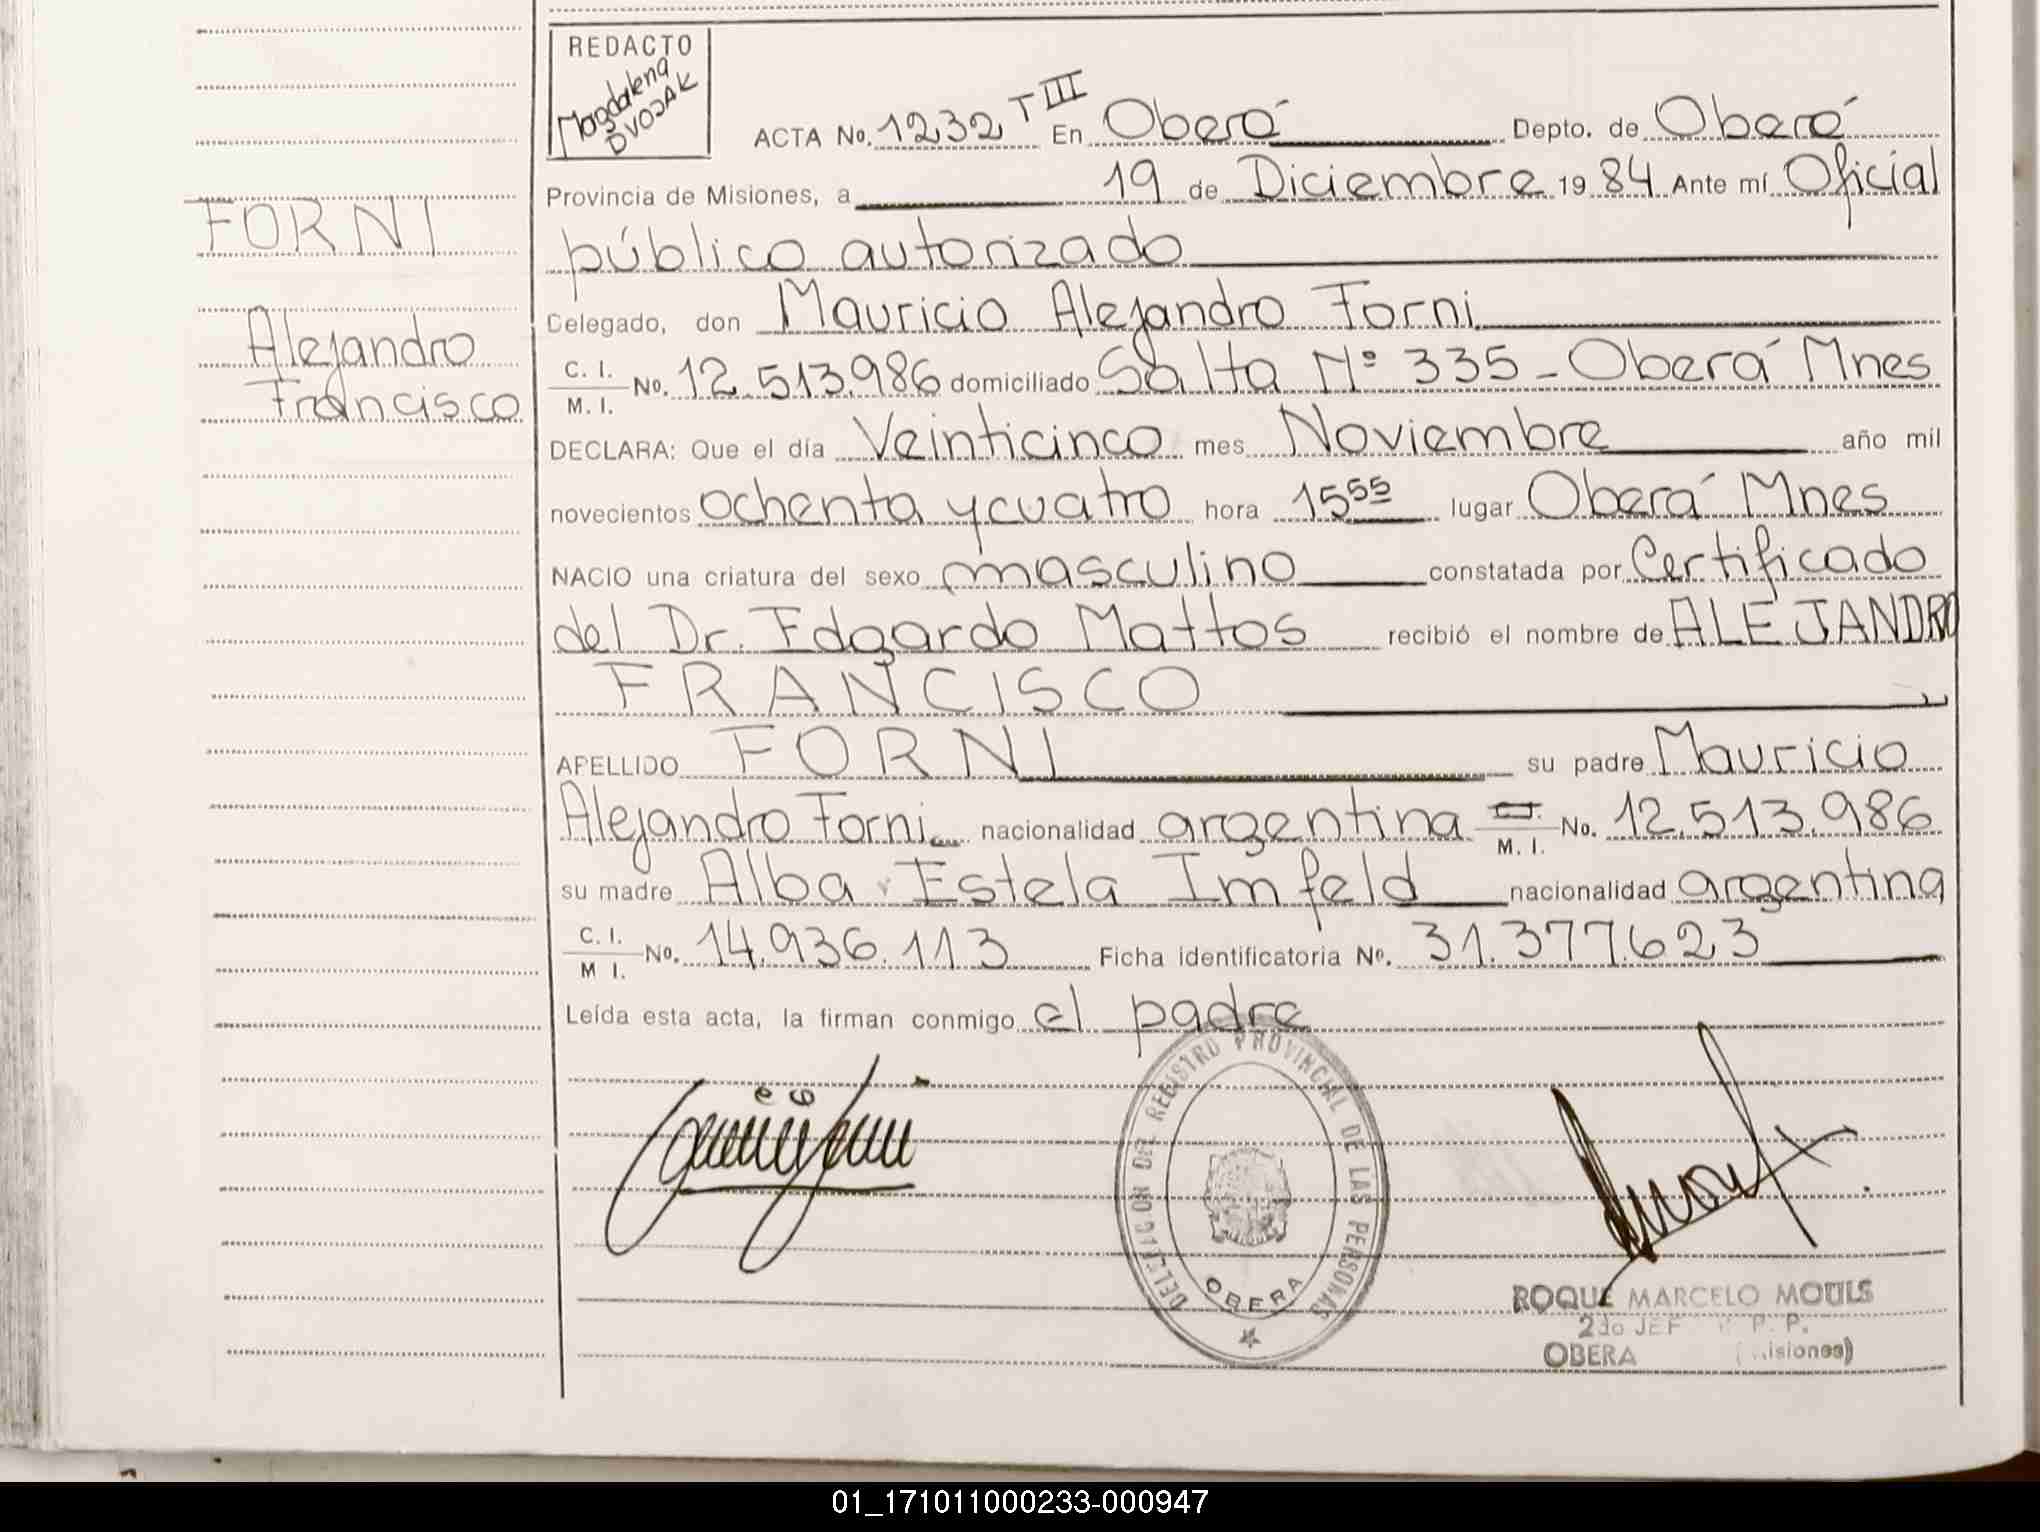 REDACTO
Magdalena
DVOJAK
ACTA No. 1232 T III En Oberá Depto. de Oberá
Provincia de Misiones, a 19 de Diciembre 19 84 Ante mí Oficial
público autorizado
FORNI
Delegado, don Mauricio Alejandro Forni
Alejandro
Francisco
C. I.
M. I. No. 12.513.986 domiciliado Salta Nº 335 - Oberá Mnes
DECLARA: Que el día Veinticinco mes Noviembre año mil
novecientos ochenta y cuatro hora 15 55 lugar Oberá Mnes
NACIO una criatura del sexo masculino constatada por Certificado
del Dr. Edgardo Mattos recibió el nombre de ALEJANDRO
FRANCISCO
APELLIDO FORNI su padre Mauricio
Alejandro Forni nacionalidad argentina C.I. M. I. No. 12.513.986
su madre Alba Estela Imfeld nacionalidad argentina
C. I.
M I. No. 14.936.113 Ficha identificatoria No. 31.377.623
Leída esta acta, la firman conmigo el padre
DELEGACION DEL REGISTRO PROVINCIAL DE LAS PERSONAS
OBERA
ROQUE MARCELO MOULS
2do JEF P. P.
OBERA (Misiones)
01_171011000233-000947